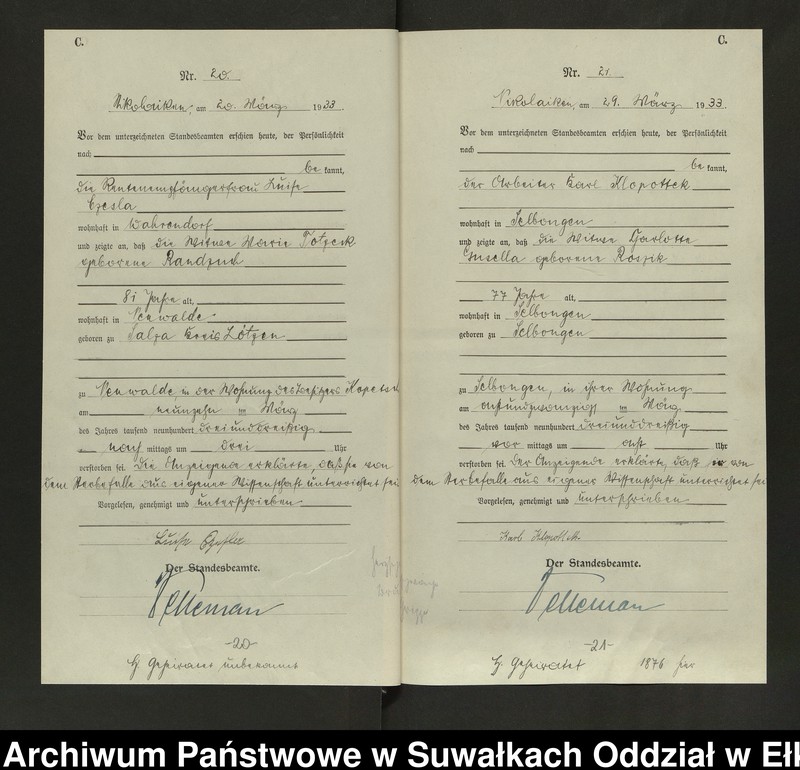 C.
Nr. 20.
Nikolaiken, am 20. März 1933.
Vor dem unterzeichneten Standesbeamten erschien heute, der Persönlichkeit
nach
be kannt,
die Rentenempfängerfrau Luise
Czesla
wohnhaft in Wahrendorf
und zeigte an, daß die Witwe Marie
geborene
81 Jahre alt,
wohnhaft in Neuwalde
geboren zu Salza Kreis Lötzen
zu Neuwalde, in der Wohnung des Besitzers
am neunzehn ten März
des Jahres tausend neunhundert dreiunddreißig
nach mittags um drei Uhr
verstorben sei. Die Anzeigende erklärte, daß sie von
dem Sterbefalle aus eigener Wissenschaft unterrichtet sei
Vorgelesen, genehmigt und unterschrieben
Luise
Der Standesbeamte.
-20-
geheiratet unbekannt
C.
Nr. 21.
Nikolaiken, am 29. März 1933.
Vor dem unterzeichneten Standesbeamten erschien heute, der Persönlichkeit
nach
be kannt,
der Arbeiter Karl Klopottek
wohnhaft in Selbongen
und zeigte an, daß die Witwe Charlotte
geborene
77 Jahre alt,
wohnhaft in Selbongen
geboren zu Selbongen
zu Selbongen, in ihrer Wohnung
am achtundzwanzigsten März
des Jahres tausend neunhundert dreiunddreißig
vor mittags um acht Uhr
verstorben sei. Der Anzeigende erklärte, daß er von
dem Sterbefalle aus eigener Wissenschaft unterrichtet sei
Vorgelesen, genehmigt und unterschrieben
Karl Klopottek
Der Standesbeamte.
-21-
geheiratet 1876 hier
Archiwum Państwowe w Suwałkach Oddział w Ełk